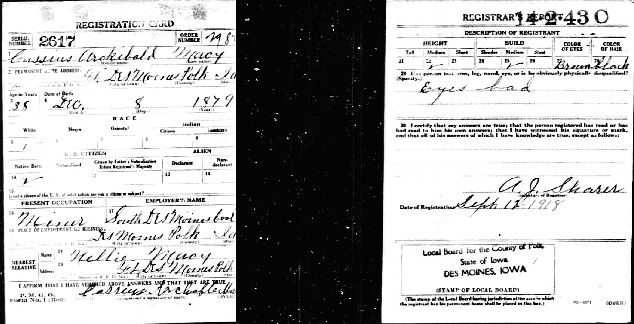 REGISTRATION CARD
SERIAL NUMBER 2617
ORDER NUMBER
Cassius Archibald Macy
PERMANENT HOME ADDRESS:
Des Moines Polk
Age in Years Date of Birth
38 Dec. 8 1879
RACE
White Negro Oriental Indian
Citizen Noncitizen
U. S. CITIZEN ALIEN
Native Born Naturalized Citizen by Father's Naturalization Before Registrant's Majority Declarant Non-declarant
If not a citizen of the U. S. of what nation are you a citizen or subject?
PRESENT OCCUPATION EMPLOYER'S NAME
Miner South Des Moines Coal
PLACE OF EMPLOYMENT OR BUSINESS:
Des Moines Polk
NEAREST RELATIVE
Name Nellie Macy
Address Des Moines Polk
I AFFIRM THAT I HAVE VERIFIED ABOVE ANSWERS AND THAT THEY ARE TRUE
P. M. G. O.
Form No. 1 (Red)
REGISTRAR'S REPORT
DESCRIPTION OF REGISTRANT
HEIGHT BUILD COLOR OF EYES COLOR OF HAIR
Tall Medium Short Slender Medium Stout
21 22 23 24 25 26 27 28
Brown Black
29 Has person lost arm, leg, hand, eye, or is he obviously physically disqualified?
(Specify.)
Eyes bad
30 I certify that my answers are true; that the person registered has read or has had read to him his own answers; that I have witnessed his signature or mark, and that all of his answers of which I have knowledge are true, except as follows:
A. J. Sharer
Date of Registration Sept. 12 1918
Local Board for the County of Polk,
State of Iowa
DES MOINES, IOWA
(STAMP OF LOCAL BOARD)
(The stamp of the Local Board having jurisdiction of the area in which the registrant has his permanent home shall be placed in this box.)
(OVER)